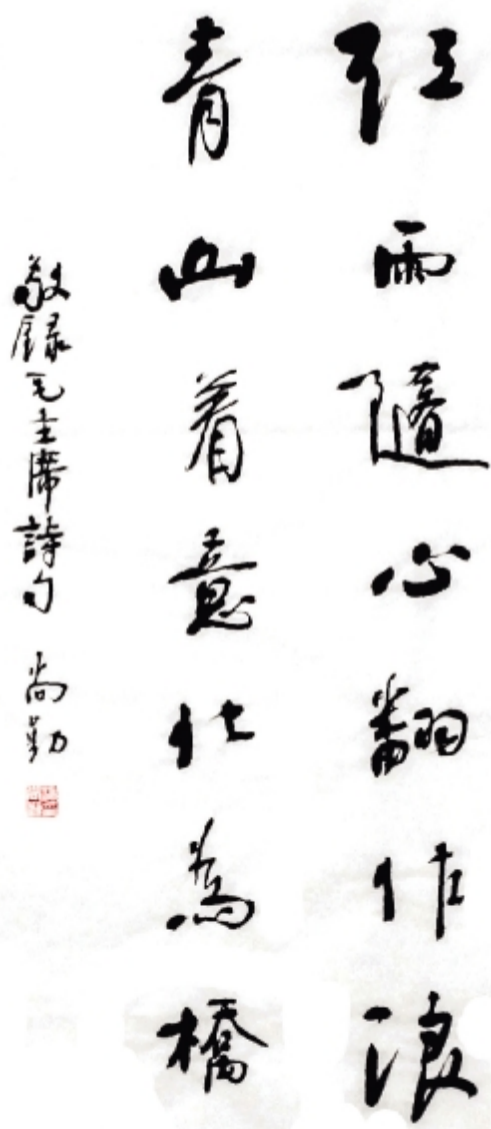 紅雨隨心翻作浪
青山着意化為橋
敬録毛主席詩句 尚勤